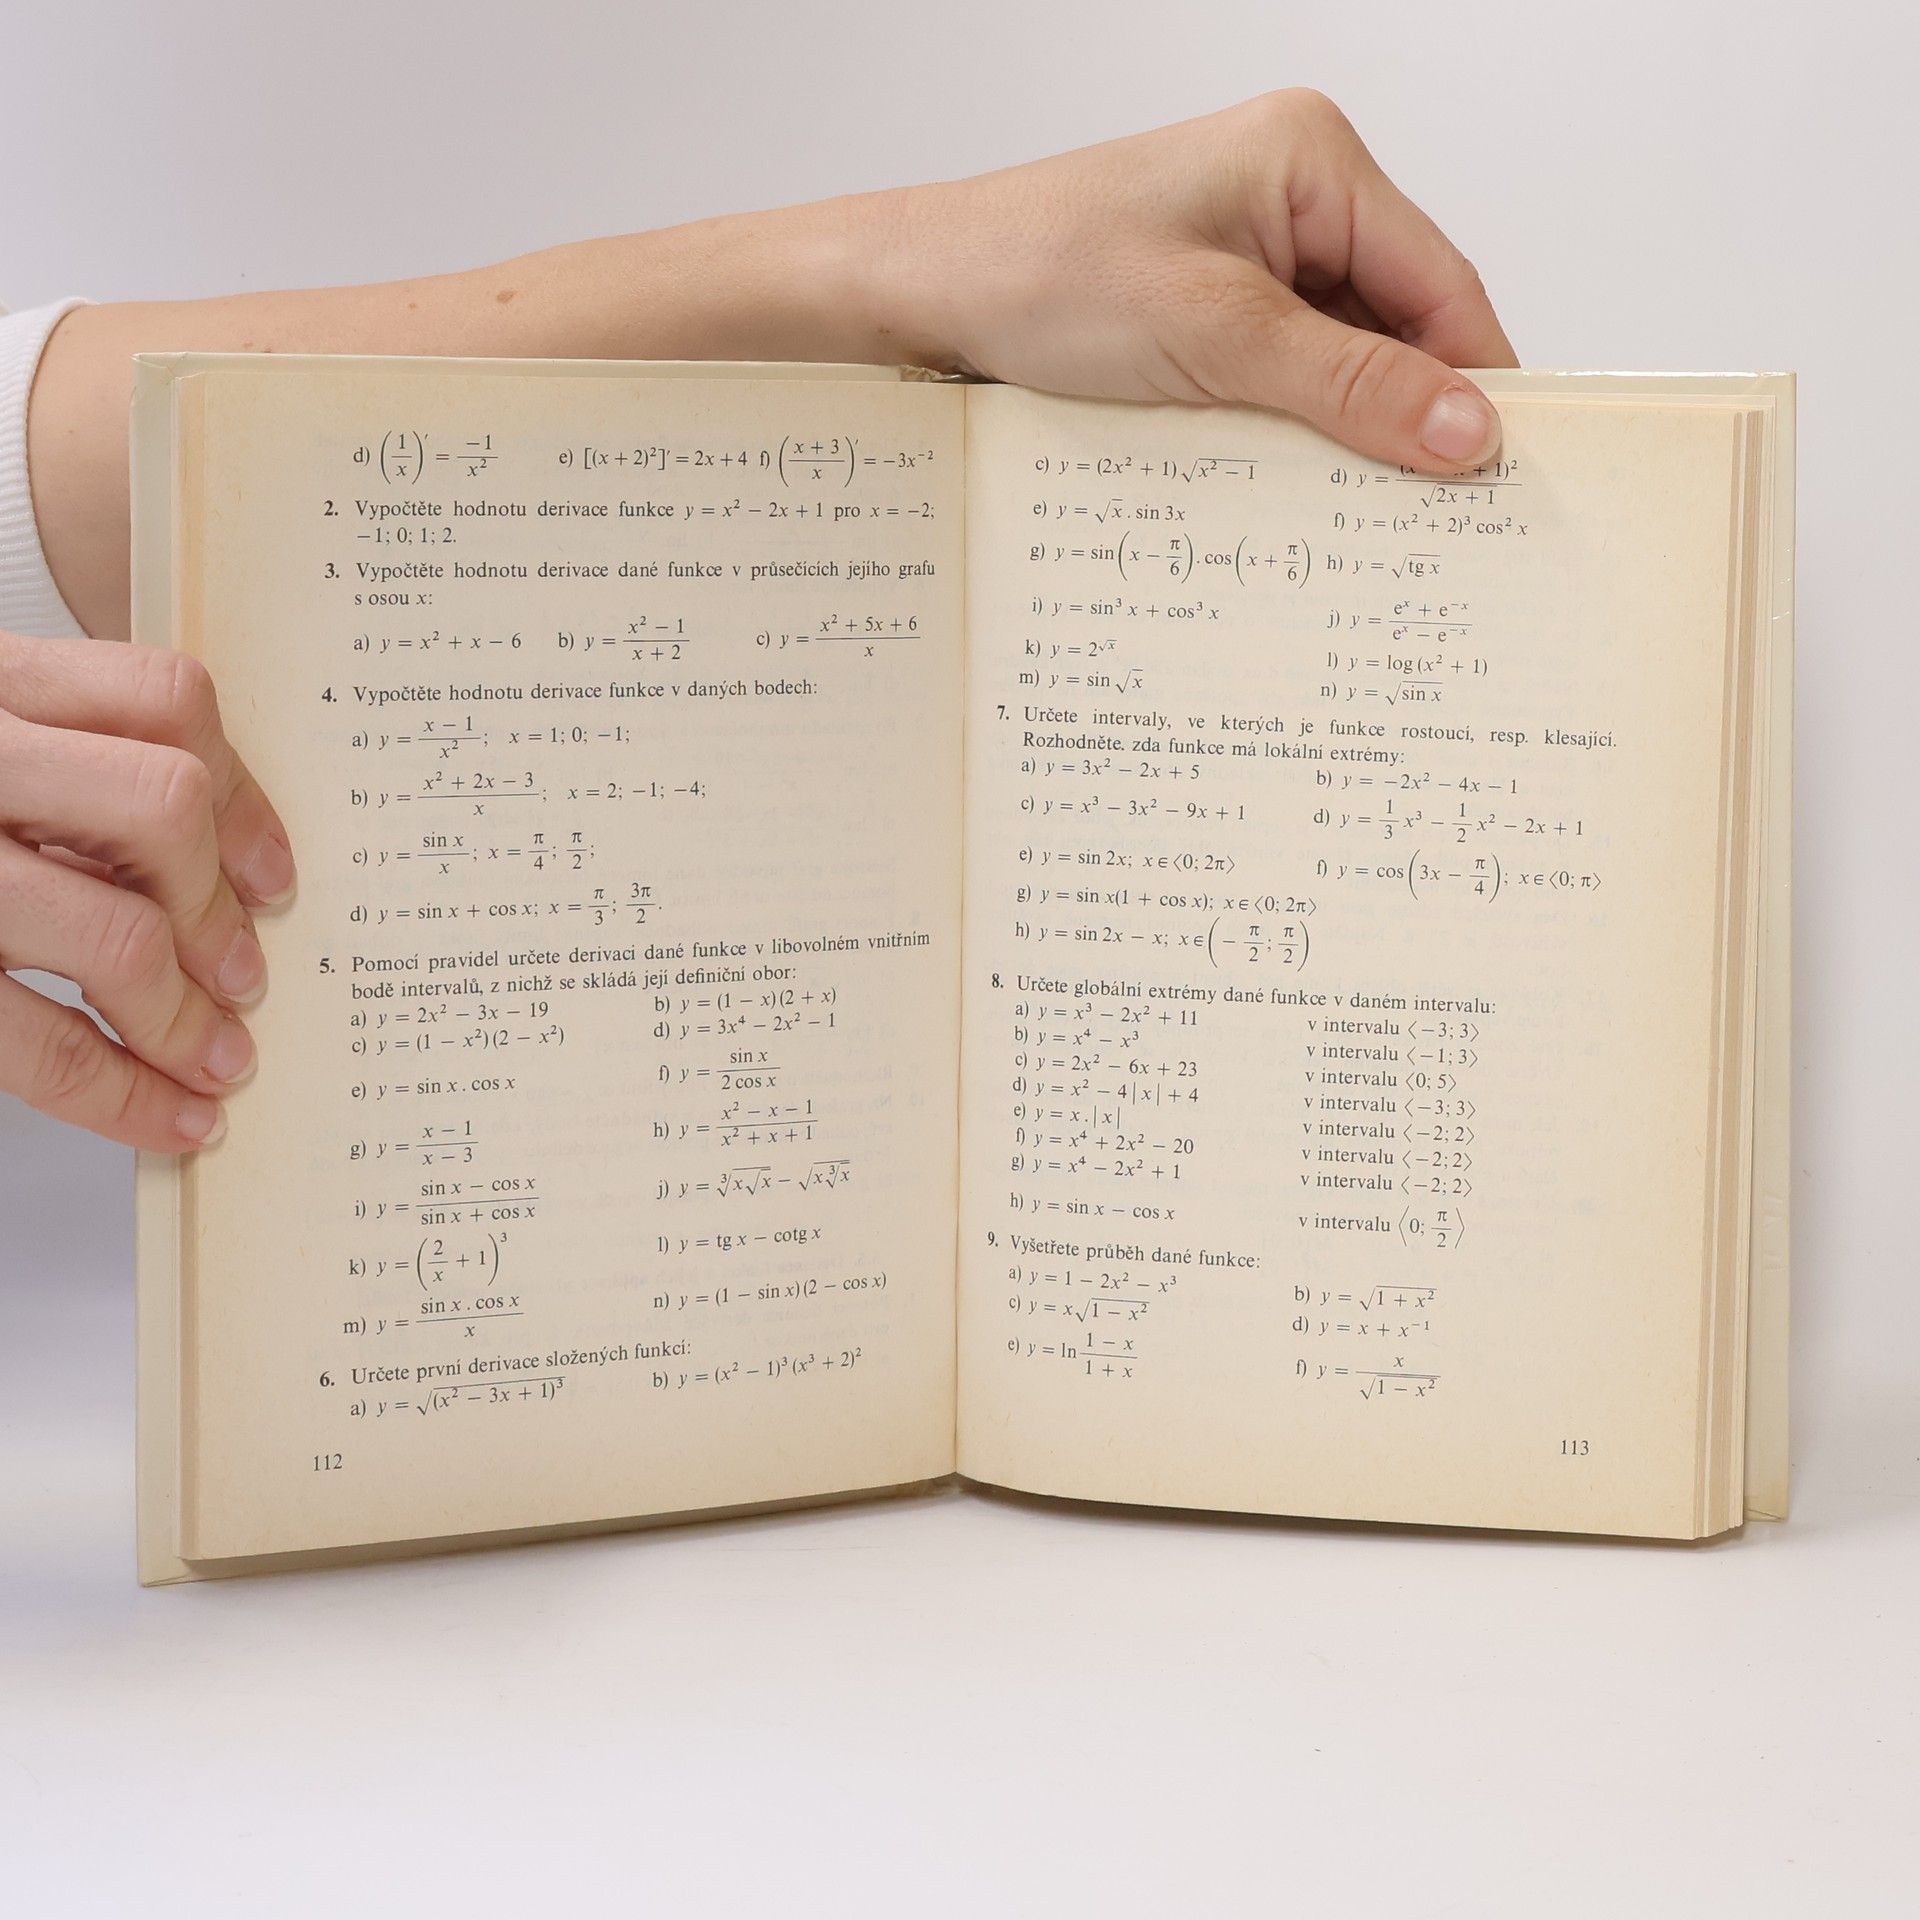 d) (1/x)′ = −1/x² e) [(x + 2)²]′ = 2x + 4 f) ((x + 3)/x)′ = −3x⁻²
2. Vypočtěte hodnotu derivace funkce y = x² − 2x + 1 pro x = −2;
−1; 0; 1; 2.
3. Vypočtěte hodnotu derivace dané funkce v průsečících jejího grafu
s osou x:
a) y = x² + x − 6 b) y = (x² − 1)/(x + 2) c) y = (x² + 5x + 6)/x
4. Vypočtěte hodnotu derivace funkce v daných bodech:
a) y = (x − 1)/x²; x = 1; 0; −1;
b) y = (x² + 2x − 3)/x; x = 2; −1; −4;
c) y = sin x/x; x = π/4; π/2;
d) y = sin x + cos x; x = π/3; 3π/2.
5. Pomocí pravidel určete derivaci dané funkce v libovolném vnitřním
bodě intervalů, z nichž se skládá její definiční obor:
a) y = 2x² − 3x − 19 b) y = (1 − x)(2 + x)
c) y = (1 − x²)(2 − x²) d) y = 3x⁴ − 2x² − 1
e) y = sin x . cos x f) y = sin x/(2 cos x)
g) y = (x − 1)/(x − 3) h) y = (x² − x − 1)/(x² + x + 1)
i) y = (sin x − cos x)/(sin x + cos x) j) y = ∛(x√x) − √(x∛x)
k) y = (2/x + 1)³ l) y = tg x − cotg x
m) y = (sin x . cos x)/x n) y = (1 − sin x)(2 − cos x)
6. Určete první derivace složených funkcí:
a) y = √((x² − 3x + 1)³) b) y = (x² − 1)³ (x³ + 2)²
112
c) y = (2x² + 1)√(x² − 1) d) y = + 1)²/√(2x + 1)
e) y = √x . sin 3x f) y = (x² + 2)³ cos² x
g) y = sin(x − π/6) . cos(x + π/6) h) y = √(tg x)
i) y = sin³ x + cos³ x j) y = (eˣ + e⁻ˣ)/(eˣ − e⁻ˣ)
k) y = 2^√x l) y = log (x² + 1)
m) y = sin √x n) y = √(sin x)
7. Určete intervaly, ve kterých je funkce rostoucí, resp. klesající.
Rozhodněte, zda funkce má lokální extrémy:
a) y = 3x² − 2x + 5 b) y = −2x² − 4x − 1
c) y = x³ − 3x² − 9x + 1 d) y = 1/3 x³ − 1/2 x² − 2x + 1
e) y = sin 2x; x ∈ ⟨0; 2π⟩ f) y = cos(3x − π/4); x ∈ ⟨0; π⟩
g) y = sin x(1 + cos x); x ∈ ⟨0; 2π⟩
h) y = sin 2x − x; x ∈ (−π/2; π/2)
8. Určete globální extrémy dané funkce v daném intervalu:
a) y = x³ − 2x² + 11 v intervalu ⟨−3; 3⟩
b) y = x⁴ − x³ v intervalu ⟨−1; 3⟩
c) y = 2x² − 6x + 23 v intervalu ⟨0; 5⟩
d) y = x² − 4|x| + 4 v intervalu ⟨−3; 3⟩
e) y = x . |x| v intervalu ⟨−2; 2⟩
f) y = x⁴ + 2x² − 20 v intervalu ⟨−2; 2⟩
g) y = x⁴ − 2x² + 1 v intervalu ⟨−2; 2⟩
h) y = sin x − cos x v intervalu ⟨0; π/2⟩
9. Vyšetřete průběh dané funkce:
a) y = 1 − 2x² − x³ b) y = √(1 + x²)
c) y = x√(1 − x²) d) y = x + x⁻¹
e) y = ln (1 − x)/(1 + x) f) y = x/√(1 − x²)
113